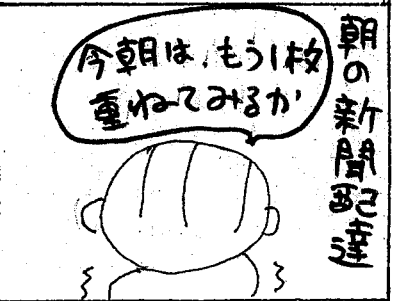 朝の新聞配達
今朝は、もう1枚
重ねてみるか